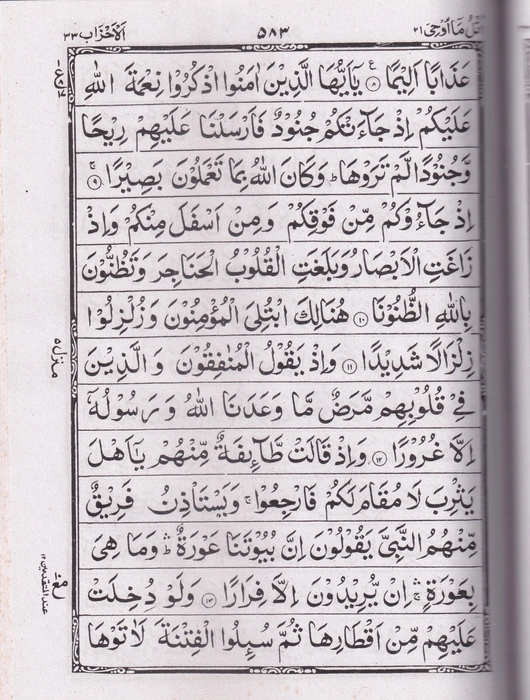 اتل ما اوحی ۲۱ ۵۸۳ الاحزاب ۳۳
عَذَابًا اَلِيْمًا ۸ يٰٓاَيُّهَا الَّذِيْنَ اٰمَنُوا اذْكُرُوْا نِعْمَةَ اللّٰهِ
عَلَيْكُمْ اِذْ جَآءَتْكُمْ جُنُوْدٌ فَاَرْسَلْنَا عَلَيْهِمْ رِيْحًا
وَّجُنُوْدًا لَّمْ تَرَوْهَا ؕ وَكَانَ اللّٰهُ بِمَا تَعْمَلُوْنَ بَصِيْرًا ۹
اِذْ جَآءُوْكُمْ مِّنْ فَوْقِكُمْ وَمِنْ اَسْفَلَ مِنْكُمْ وَاِذْ
زَاغَتِ الْاَبْصَارُ وَبَلَغَتِ الْقُلُوْبُ الْحَنَاجِرَ وَتَظُنُّوْنَ
بِاللّٰهِ الظُّنُوْنَا ۱۰ هُنَالِكَ ابْتُلِيَ الْمُؤْمِنُوْنَ وَزُلْزِلُوْا
زِلْزَالًا شَدِيْدًا ۱۱ وَاِذْ يَقُوْلُ الْمُنٰفِقُوْنَ وَالَّذِيْنَ
فِيْ قُلُوْبِهِمْ مَّرَضٌ مَّا وَعَدَنَا اللّٰهُ وَرَسُوْلُهٗٓ
اِلَّا غُرُوْرًا ۱۲ وَاِذْ قَالَتْ طَّآئِفَةٌ مِّنْهُمْ يٰٓاَهْلَ
يَثْرِبَ لَا مُقَامَ لَكُمْ فَارْجِعُوْا ۚ وَيَسْتَاْذِنُ فَرِيْقٌ
مِّنْهُمُ النَّبِيَّ يَقُوْلُوْنَ اِنَّ بُيُوْتَنَا عَوْرَةٌ ؕ وَمَا هِيَ
بِعَوْرَةٍ ۛۚ اِنْ يُّرِيْدُوْنَ اِلَّا فِرَارًا ۱۳ وَلَوْ دُخِلَتْ
عَلَيْهِمْ مِّنْ اَقْطَارِهَا ثُمَّ سُئِلُوا الْفِتْنَةَ لَاٰتَوْهَا
منزل ۵
عند المتقدمین ۱۲